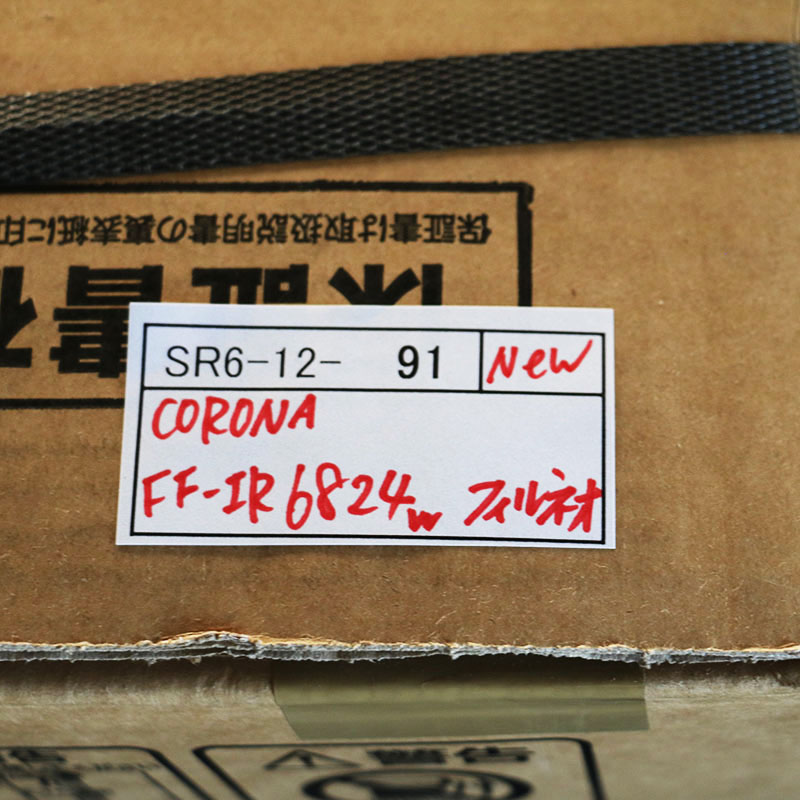 保証書は取扱説明書の裏表紙に印
保証書
SR6-12- 91 New
CORONA
FF-IR6824w フィルネオ
警告